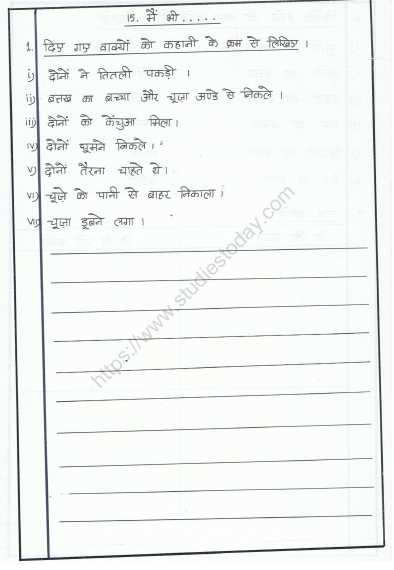 15. मैं भी.....
1. दिए गए वाक्यों को कहानी के क्रम से लिखिए ।
i) दोनों ने तितली पकड़ी ।
ii) बत्तख का बच्चा और चूज़ा अण्डे से निकले ।
iii) दोनों को केंचुआ मिला ।
iv) दोनों घूमने निकले ।
v) दोनों तैरना चाहते थे ।
vi) चूज़े को पानी से बाहर निकाला ।
vii) चूज़ा डूबने लगा ।
https://www.studiestoday.com